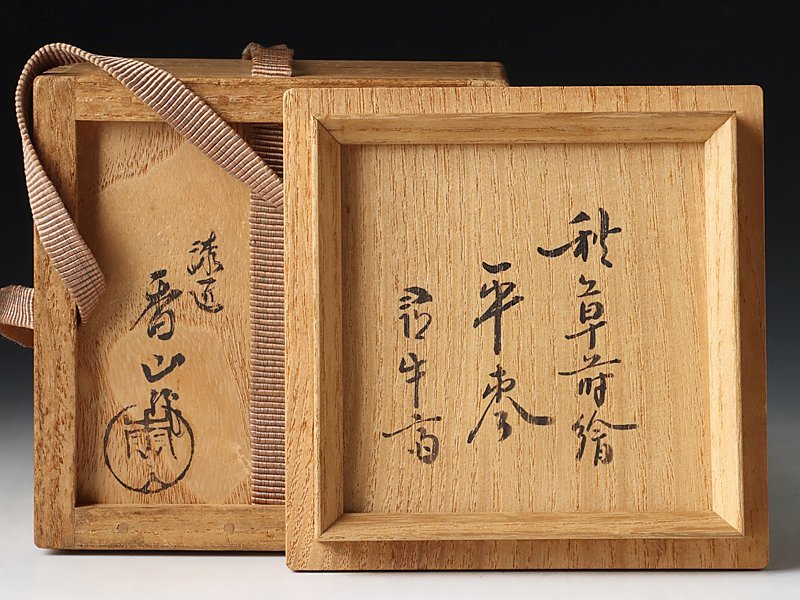 秋草蒔絵
平棗
尋牛斎
漆匠
香山